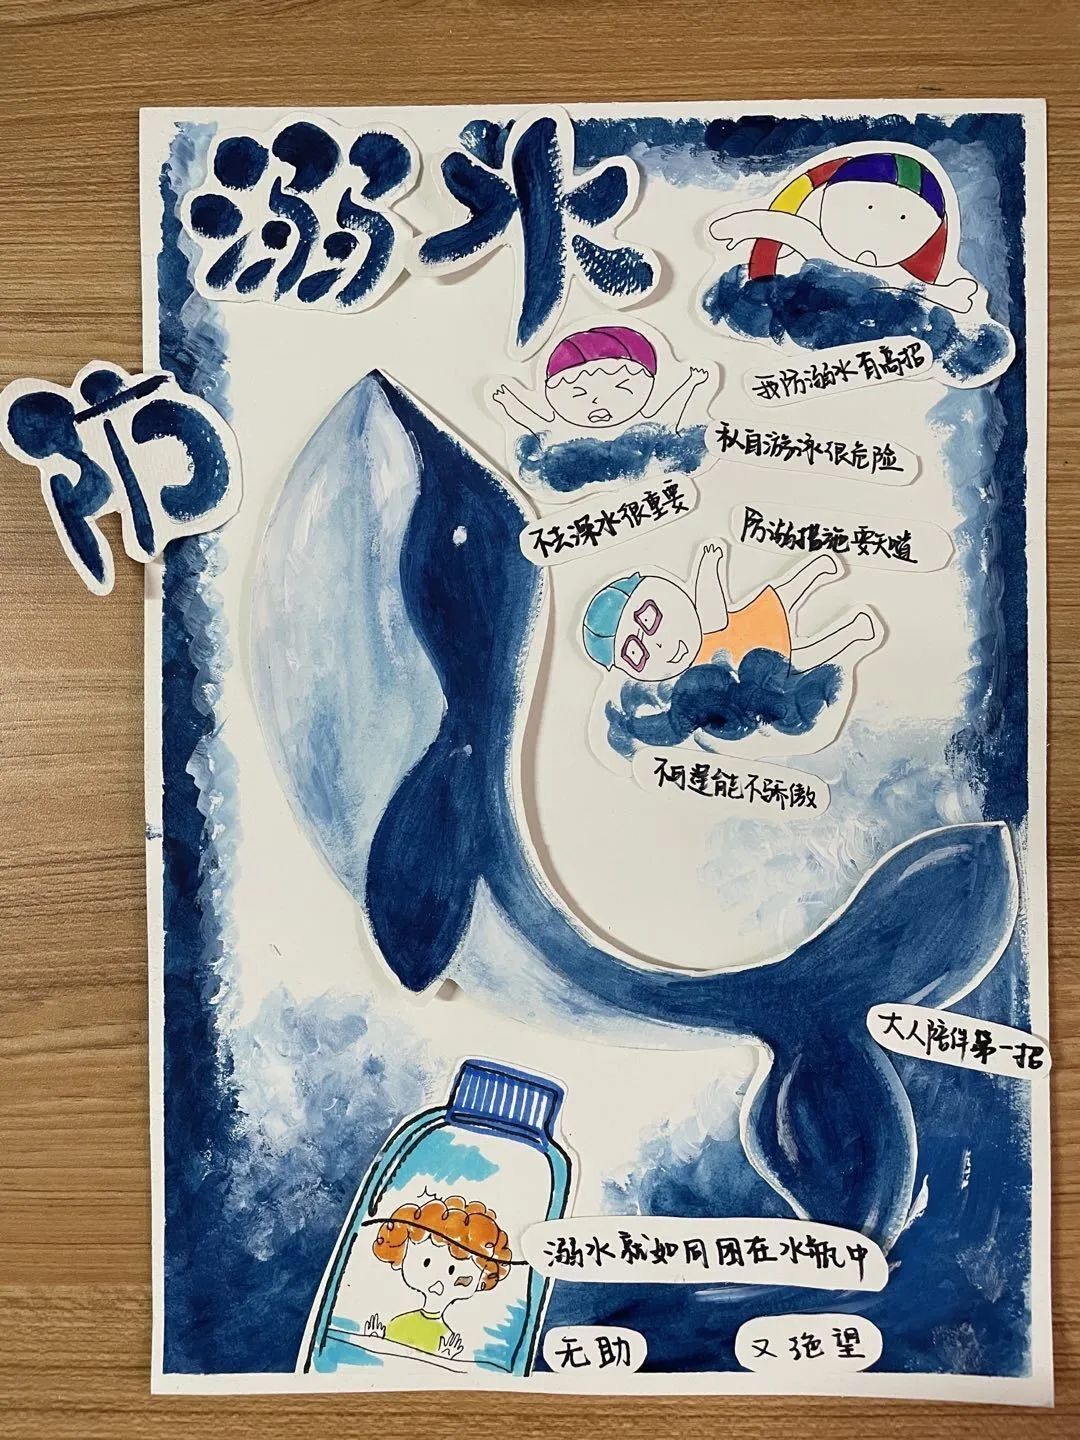 防
溺水
我防溺水有高招
私自游泳很危险
不去深水很重要
防溺措施要天嗔
不可逞能不骄傲
大人陪伴第一招
溺水就如同困在水瓶中
无助
又绝望